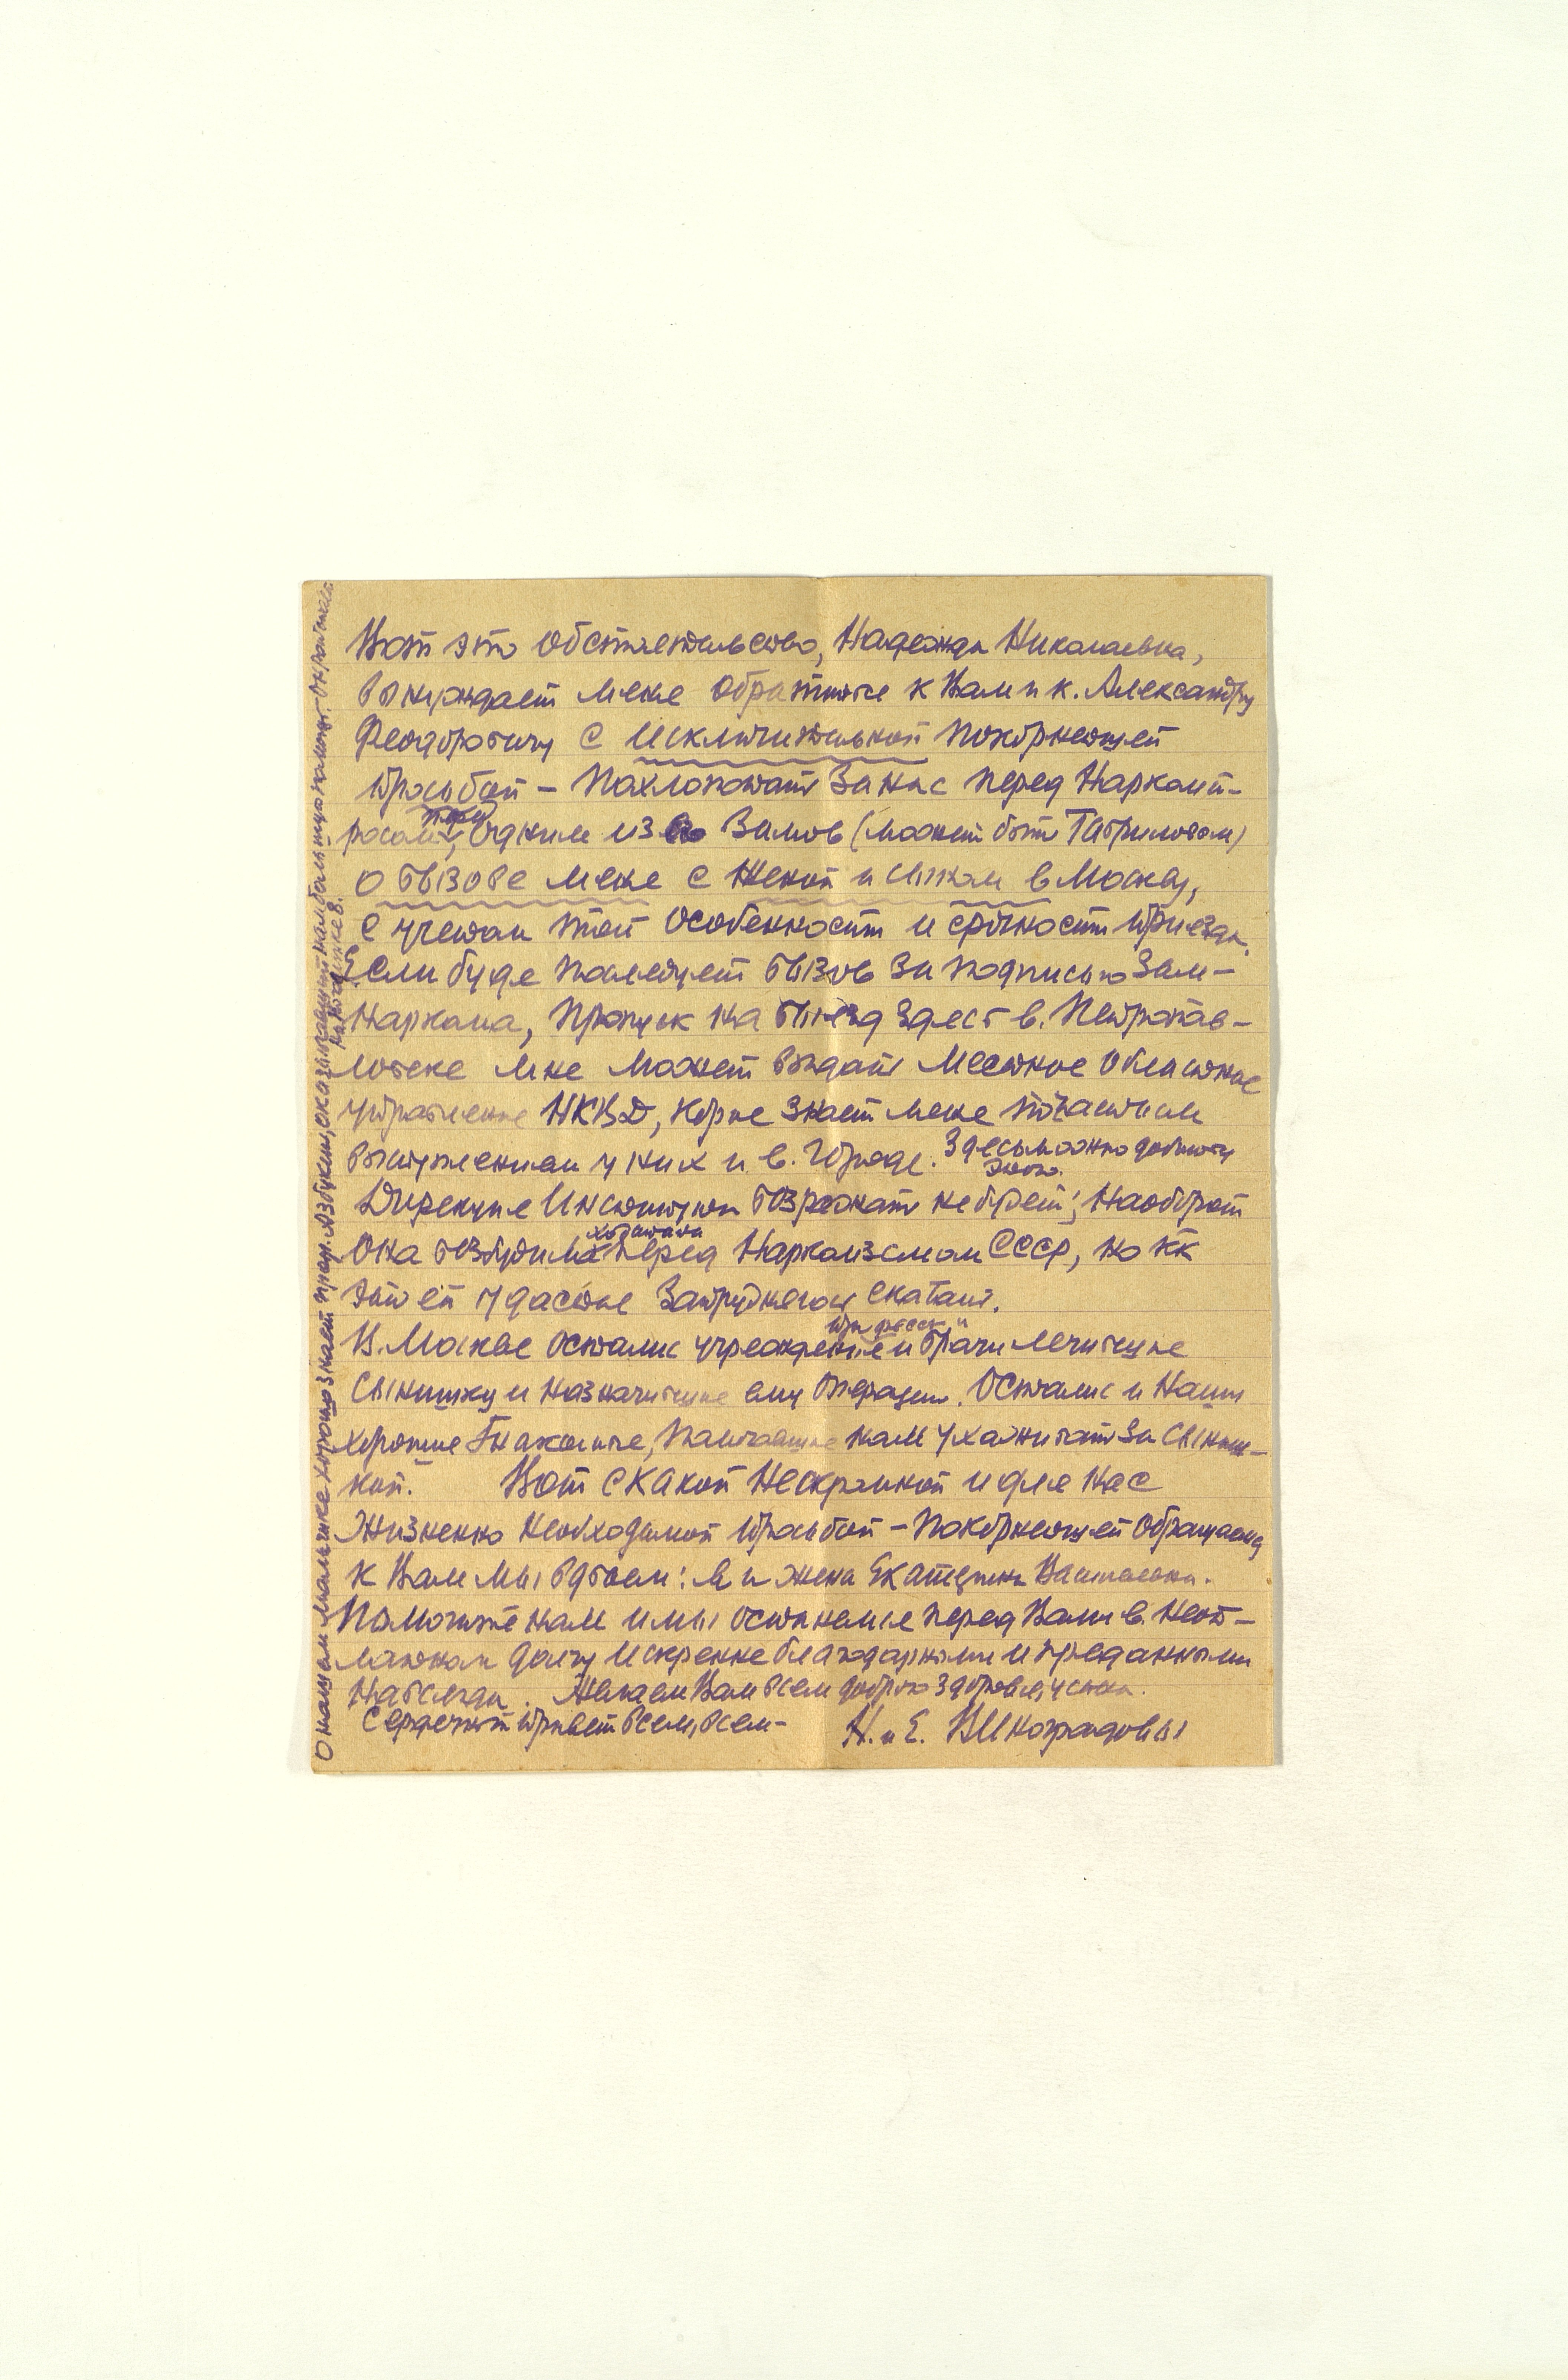 Вот это обстоятельство, Надежда Николаевна,
вынуждает меня обратиться к Вам и к. Александру
Феодоровичу с исключительной покорнейшей
просьбой – похлопотать за нас перед Наркомп-
росом, одним из Замов (может быть Гавриловым)
о вызове меня с женой и сыном в Москву,
с учетом этой особенности и срочности приезда.
Если буде последует вызов за подписью Зам-
Наркома, пропуск на выезд здесь в. Петропав-
ловске мне может выдать местное областное
управление НКВД, знает меня по частым
выступлениям у них и в. Городе. Здесь можно добиться
этого.
Дирекция Института возражать не будет; наоборот
ходатайст.
она возбудила перед Наркомземом СССР, но кк
это ей удастся затрудняюсь сказать.
В. Москве остались учреждение и врачи лечившие
сынишку и назначившие ему операцию. Остались и наши
хорошие знакомые, помогавшие нам ухаживать за сыниш-
кой. Вот с какой нескромной и для нас
жизненно необходимой просьбой – покорнейшей обращаемся
к Вам мы вдвоем: я и жена Екатерина Васильевна.
Помогите нам и мы останемся перед Вами в. неоп-
латном долгу искренне благодарными и преданными
навсегда. Желаем Вам всем доброго здоровья, успеха.
Сердечный привет всем, всем –
Н. и Е. Виноградовы
О нашем мальчике хорошо знает проф. Азбукин, оказывавший нам большую помощь. Он работает